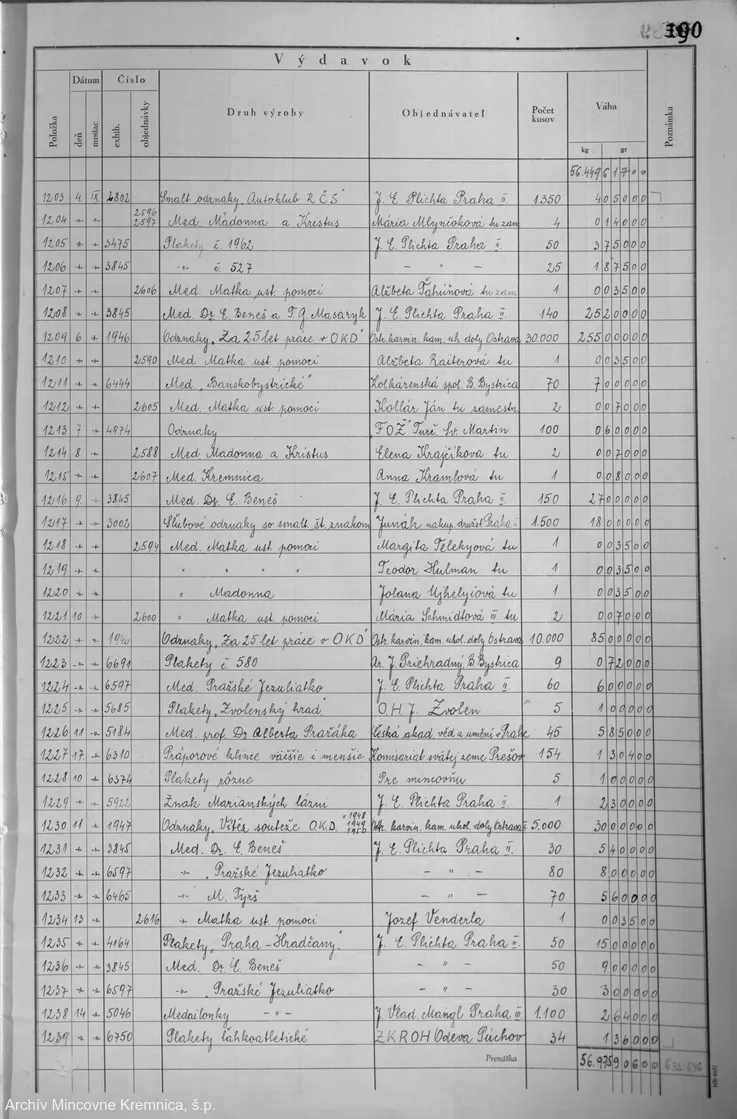 190
Výdavok
Položka Dátum deň mesiac Číslo exhib. objednávky Druh výroby Objednávateľ Počet kusov Váha kg gr Poznámka
56.449 6 1 7 0 0
1203 4 IX 2802 Smalt odznaky „Autoklub RČS" J. E. Plichta Praha II. 1.350 4 0 5 0 0 0
1204 -"- -"- 2596 2597 Med. Madonna a Kristus Mária Mlynčoková tu zam 4 0 1 4 0 0 0
1205 -"- -"- 3475 Plakety č 1962 J. E. Plichta Praha II. 50 3 7 5 0 0 0
1206 -"- -"- 3845 -"- č. 527 - " - 25 1 8 7 5 0 0
1207 -"- -"- 2606 Med. Matka ust. pomoci Alžbeta Ťahúňová tu zam 1 0 0 3 5 0 0
1208 -"- -"- 3845 Med. Dr. E. Beneš a T. G. Masaryk J. E. Plichta Praha II. 140 25 2 0 0 0 0
1209 6 -"- 1946 Odznaky „Za 25 let práce v OKD" Ostr. karvin. kam. uh. doly Ostrava 30.000 255 0 0 0 0 0
1210 -"- -"- 2590 Med. Matka ust. pomoci Alžbeta Raiterová tu 1 0 0 3 5 0 0
1211 -"- -"- 6444 Med. „Banskobystrické" Kolkárenská spol. B. Bystrica 70 7 0 0 0 0 0
1212 -"- -"- 2605 Med. Matka ust. pomoci Kollár Ján tu zamestn 2 0 0 7 0 0 0
1213 7 -"- 4974 Odznaky „FOŽ" Turč. Sv. Martin 100 0 6 0 0 0 0
1214 8 -"- 2588 Med Madonna a Kristus Elena Krajčíkova tu 2 0 0 7 0 0 0
1215 -"- -"- 2607 Med. Kremnica Anna Kramlová tu 1 0 0 8 0 0 0
1216 9 -"- 3845 Med. Dr. E. Beneš J. E. Plichta Praha II. 150 27 0 0 0 0 0
1217 -"- -"- 3002 Sľubové odznaky so smalt. št. znakom Junák nákup. družst. Praha II 1.500 18 0 0 0 0 0
1218 -"- -"- 2594 Med. Matka ust pomoci Margita Telekyová tu 1 0 0 3 5 0 0
1219 -"- -"- " " " " Teodor Hulman tu 1 0 0 3 5 0 0
1220 -"- -"- " Madonna Jolana Ujhelyiová tu 1 0 0 3 5 0 0
1221 10 -"- 2600 " Matka ust. pomoci Mária Schmidtová III. tu 2 0 0 7 0 0 0
1222 -"- -"- 1946 Odznaky „Za 25 let práce v OKD" Ostr. karvin. kam. uhol. doly Ostrava 10.000 85 0 0 0 0 0
1223 -"- -"- 6691 Plakety č. 580 Ar. J. Priehradný B. Bystrica 9 0 7 2 0 0 0
1224 -"- -"- 6597 Med. Pražské Jezuliatko J. E. Plichta Praha II. 60 6 0 0 0 0 0
1225 -"- -"- 5685 Plakety „Zvolenský hrad" O. H. J. Zvolen 5 1 0 0 0 0 0
1226 11 -"- 5184 Med. prof. Dr Alberta Pražáka Česká akad. věd a umění v Prahe 45 5 8 5 0 0 0
1227 17 -"- 6310 Práporové klince väčšie i menšie Komisariat svätej zeme Prešov 154 1 3 0 4 0 0
1228 10 -"- 6374 Plakety rôzne Pre mincovňu 5 1 0 0 0 0 0
1229 -"- -"- 5922 Znak Marianských lázni J. E. Plichta Praha II. 1 2 3 0 0 0 0
1230 11 -"- 1947 Odznaky „Vítěz souteže OKD" 1948 1949 1950 Ostr. karvin. kam. uhol. doly Ostrava 5.000 30 0 0 0 0 0
1231 -"- -"- 3845 Med. Dr. E. Beneš J. E. Plichta Praha II. 30 5 4 0 0 0 0
1232 -"- -"- 6597 -"- „Pražské Jezuliatko - " - 80 8 0 0 0 0 0
1233 -"- -"- 6465 -"- M. Tyrš - " - 70 5 6 0 0 0 0
1234 13 -"- 2616 -"- Matka ust pomoci Jozef Venderla 1 0 0 3 5 0 0
1235 -"- -"- 4164 Plakety „Praha - Hradčany." J. E. Plichta Praha II. 50 15 0 0 0 0 0
1236 -"- -"- 3845 Med. Dr. E. Beneš - " - 50 9 0 0 0 0 0
1237 -"- -"- 6597 -"- „Pražské Jezuliatko - " - 30 3 0 0 0 0 0
1238 14 -"- 5046 Medailonky -"- J. Vlad. Mangl Praha III 1.100 2 6 4 0 0 0
1239 -"- -"- 6750 Plakety ľahkoatletické ZKROH Odeva Púchov 34 1 3 6 0 0 0
Prenáška 56.975 9 0 6 0 0 632.656
Archív Mincovne Kremnica, š.p.